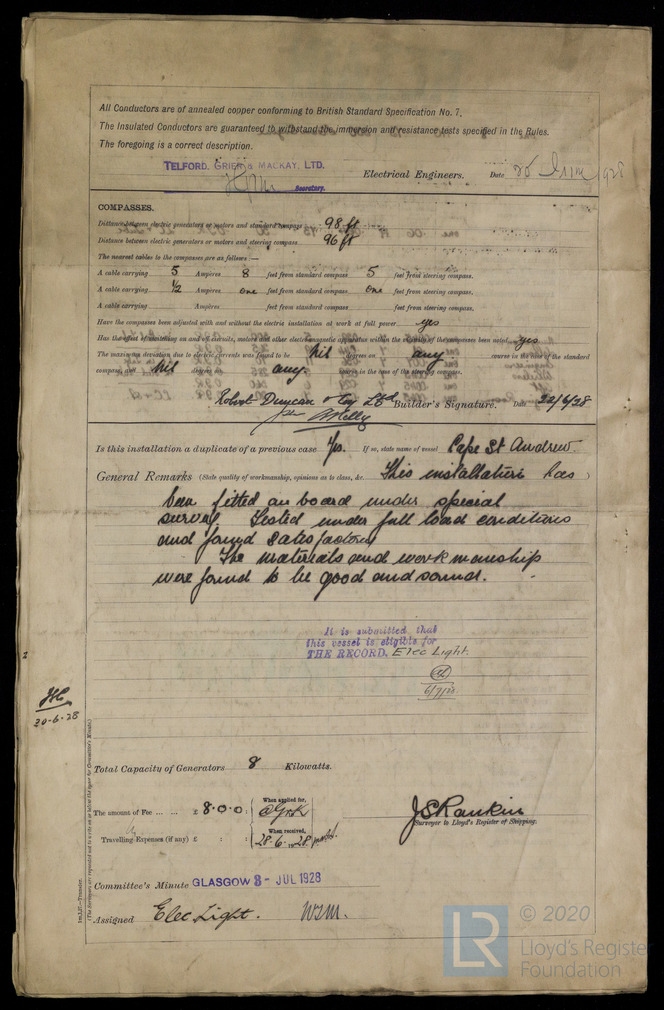 All Conductors are of annealed copper conforming to British Standard Specification No. 7.
The Insulated Conductors are guaranteed to withstand the immersion and resistance tests specified in the Rules.
The foregoing is a correct description.
TELFORD, GRIER & MACKAY, LTD.
Secretary.
Electrical Engineers. Date 1928
COMPASSES.
Distance between electric generators or motors and standard compass 98 ft
Distance between electric generators or motors and steering compass 96 ft
The nearest cables to the compasses are as follows:—
A cable carrying 5 Ampères 8 feet from standard compass 5 feet from steering compass.
A cable carrying ½ Ampères one feet from standard compass one feet from steering compass.
A cable carrying Ampères feet from standard compass feet from steering compass.
Have the compasses been adjusted with and without the electric installation at work at full power yes
Has the effect of switching on and off circuits, motors and other electro-magnetic apparatus within the vicinity of the compasses been noted yes
The maximum deviation due to electric currents was found to be Nil degrees on any course in the case of the standard
compass, and Nil degrees on any course in the case of the steering compass.
Robert Duncan & Coy Ltd Builder's Signature. Date 22/6/28
Is this installation a duplicate of a previous case Yes. If so, state name of vessel Cape St Andrew.
General Remarks (State quality of workmanship, opinions as to class, &c. This installation has )
been fitted on board under special
survey. Tested under full load conditions
and found satisfactory
The materials and workmanship
were found to be good and sound.
It is submitted that
this vessel is eligible for
THE RECORD. Elec Light.
6/7/28
30-6-28
Total Capacity of Generators 8 Kilowatts.
The amount of Fee ... ... £ 8.0.0.
When applied for,
Travelling Expenses (if any) £ : :
When received,
28.6.1928
J S Rankin
Surveyor to Lloyd's Register of Shipping.
Committee's Minute GLASGOW 3 - JUL 1928
Assigned Elec Light.
(The Surveyors are requested not to write on or below the space for Committee's Minute.)
LR
© 2020
Lloyd's Register
Foundation